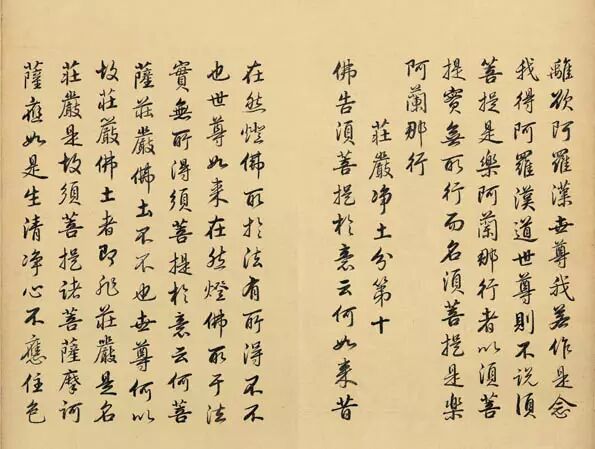 離欲阿羅漢世尊我若作是念
我得阿羅漢道世尊則不説須
菩提是樂阿蘭那行者以須菩
提實無所行而名須菩提是樂
阿蘭那行
莊嚴净土分第十
佛告須菩提於意云何如来昔
在然燈佛所於法有所得不不
也世尊如来在然燈佛所于法
實無所得須菩提於意云何菩
薩莊嚴佛土不不也世尊何以
故莊嚴佛土者即非莊嚴是名
莊嚴是故須菩提諸菩薩摩訶
薩應如是生清净心不應住色